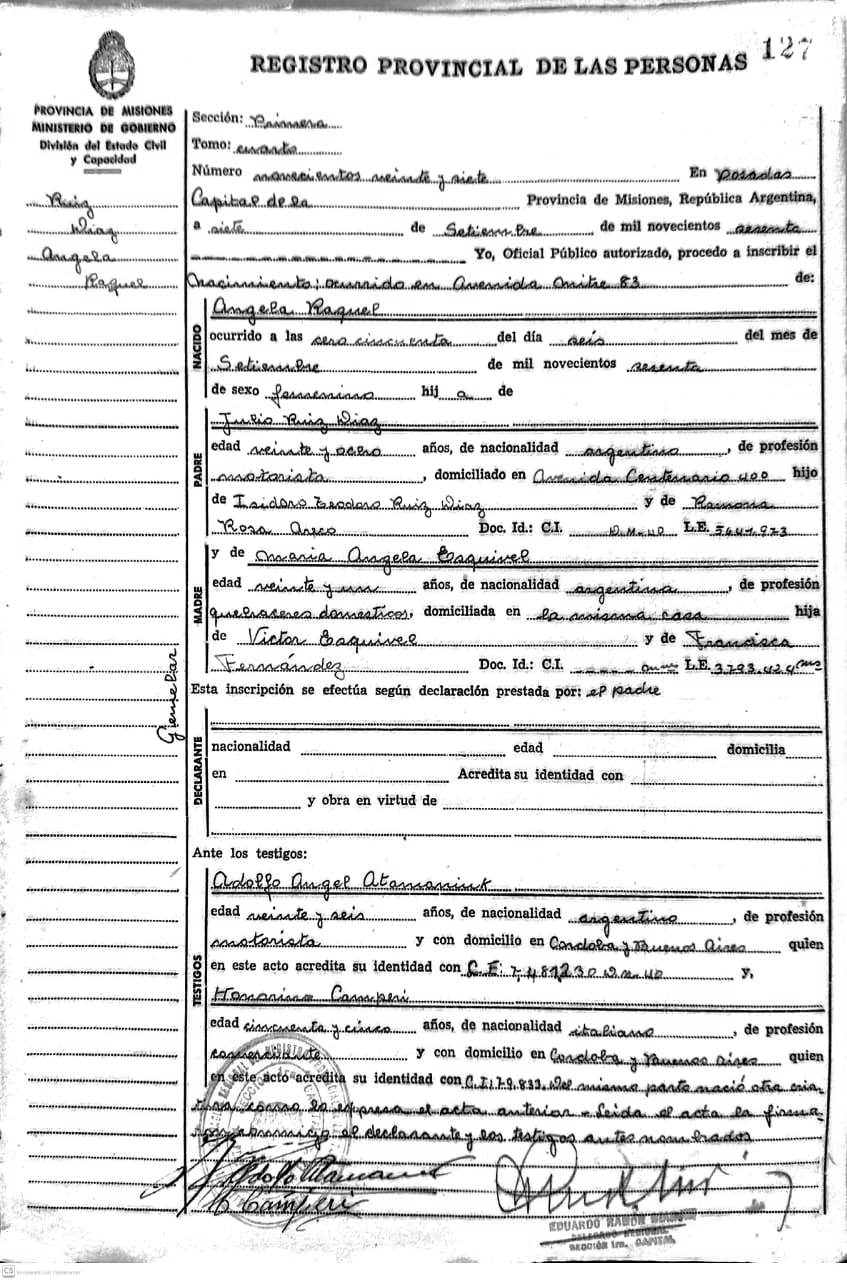 127
REGISTRO PROVINCIAL DE LAS PERSONAS
PROVINCIA DE MISIONES
MINISTERIO DE GOBIERNO
División del Estado Civil
y Capacidad
Ruiz
Diaz
Angela
Raquel
Gemelar
Sección: Primera
Tomo: cuarto
Número novecientos veinte y siete En Posadas
Capital de la Provincia de Misiones, República Argentina,
a siete de Setiembre de mil novecientos sesenta
Yo, Oficial Público autorizado, procedo a inscribir el
nacimiento; ocurrido en Avenida Mitre 83 de:
NACIDO
Angela Raquel
ocurrido a las cero cincuenta del día seis del mes de
Setiembre de mil novecientos sesenta
de sexo femenino hij a de
PADRE
Julio Ruiz Diaz
edad veinte y ocho años, de nacionalidad argentino, de profesión
motorista, domiciliado en Avenida Centenario 400 hijo
de Isidoro Teodoro Ruiz Diaz y de Ramona
Rosa Areco Doc. Id.: C.I. D.M. 40 L.E.
MADRE
y de Maria Angela Esquivel
edad veinte y un años, de nacionalidad argentina, de profesión
quehaceres domesticos, domiciliada en la misma casa hija
de Victor Esquivel y de Francisca
Fernández Doc. Id.: C.I. L.E. 3.793.424
Esta inscripción se efectúa según declaración prestada por: el padre
DECLARANTE
nacionalidad edad domicilia
en Acredita su identidad con
y obra en virtud de
Ante los testigos:
TESTIGOS
Adolfo Angel Atamaniuk
edad veinte y seis años, de nacionalidad argentino, de profesión
motorista y con domicilio en Cordoba y Buenos Aires quien
en este acto acredita su identidad con 7.481230 D.M. 40 y,
Honorino Camperi
edad cincuenta y cinco años, de nacionalidad italiano, de profesión
comerciante y con domicilio en Cordoba y Buenos Aires quien
en este acto acredita su identidad con C.I. 179.833. Del mismo parto nació otra cria-
tura como lo expresa el acta anterior - Leida el acta la firma-
ron conmigo el declarante y los testigos antes nombrados
Adolfo Atamaniuk
Camperi
EDUARDO RAMON
DELEGADO REGIONAL
SECCIÓN 1ra. CAPITAL
CS